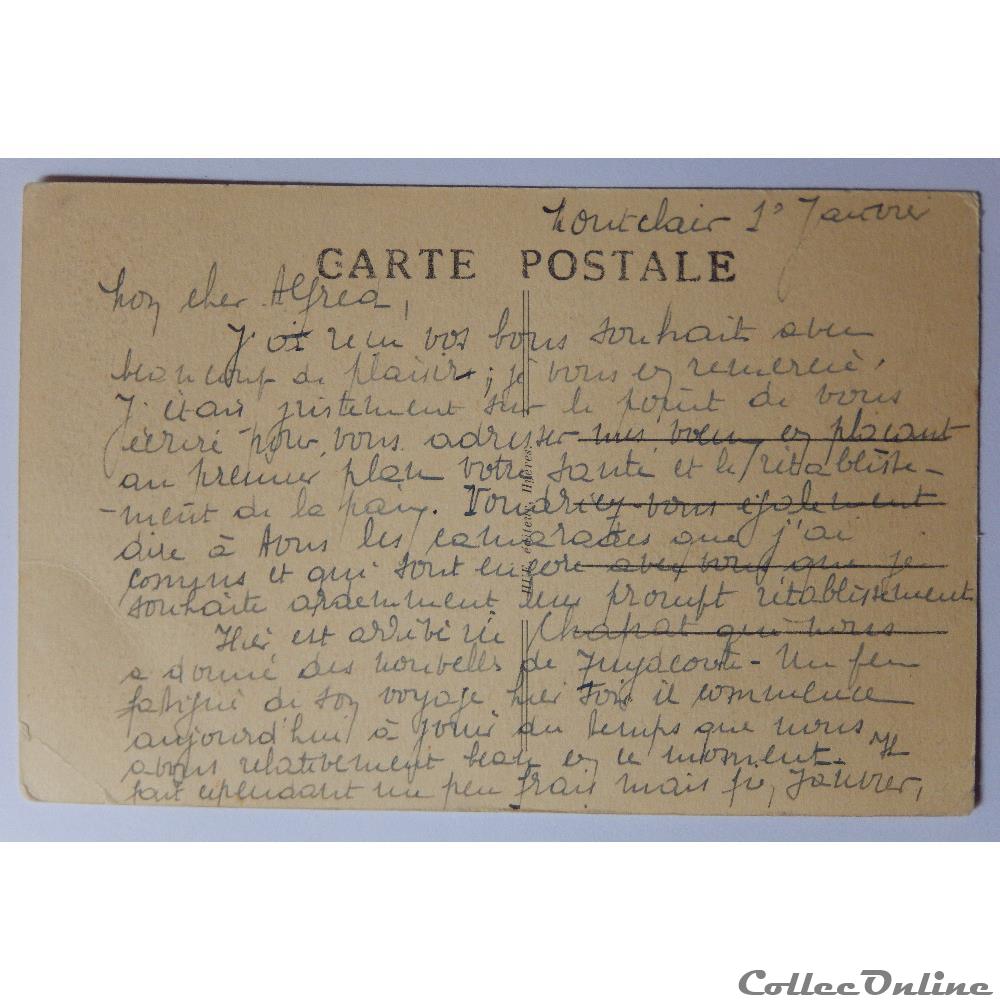 Montclair 1º Janvier
CARTE POSTALE
Mon cher Alfred,
J'ai reçu vos bons souhaits avec
beaucoup de plaisir ; je vous en remercie.
J'étais justement sur le point de vous
écrire pour vous adresser mes voeux en plaçant
au premier plan votre santé et le rétablisse-
-ment de la paix. Voudriez-vous également
dire à tous les camarades que j'ai
connus et qui sont encore avec vous que je
souhaite ardemment leur prompt rétablissements
Hier est arrivé ici Chapat qui nous
a donné des nouvelles de - Un peu
fatigué de son voyage hier soir il commence
aujourd'hui à jouir du temps que nous
avons relativement beau en ce moment. Il
fait cependant un peu frais mais Janvier,
HUE, éditeur, Hyères.
CollecOnline